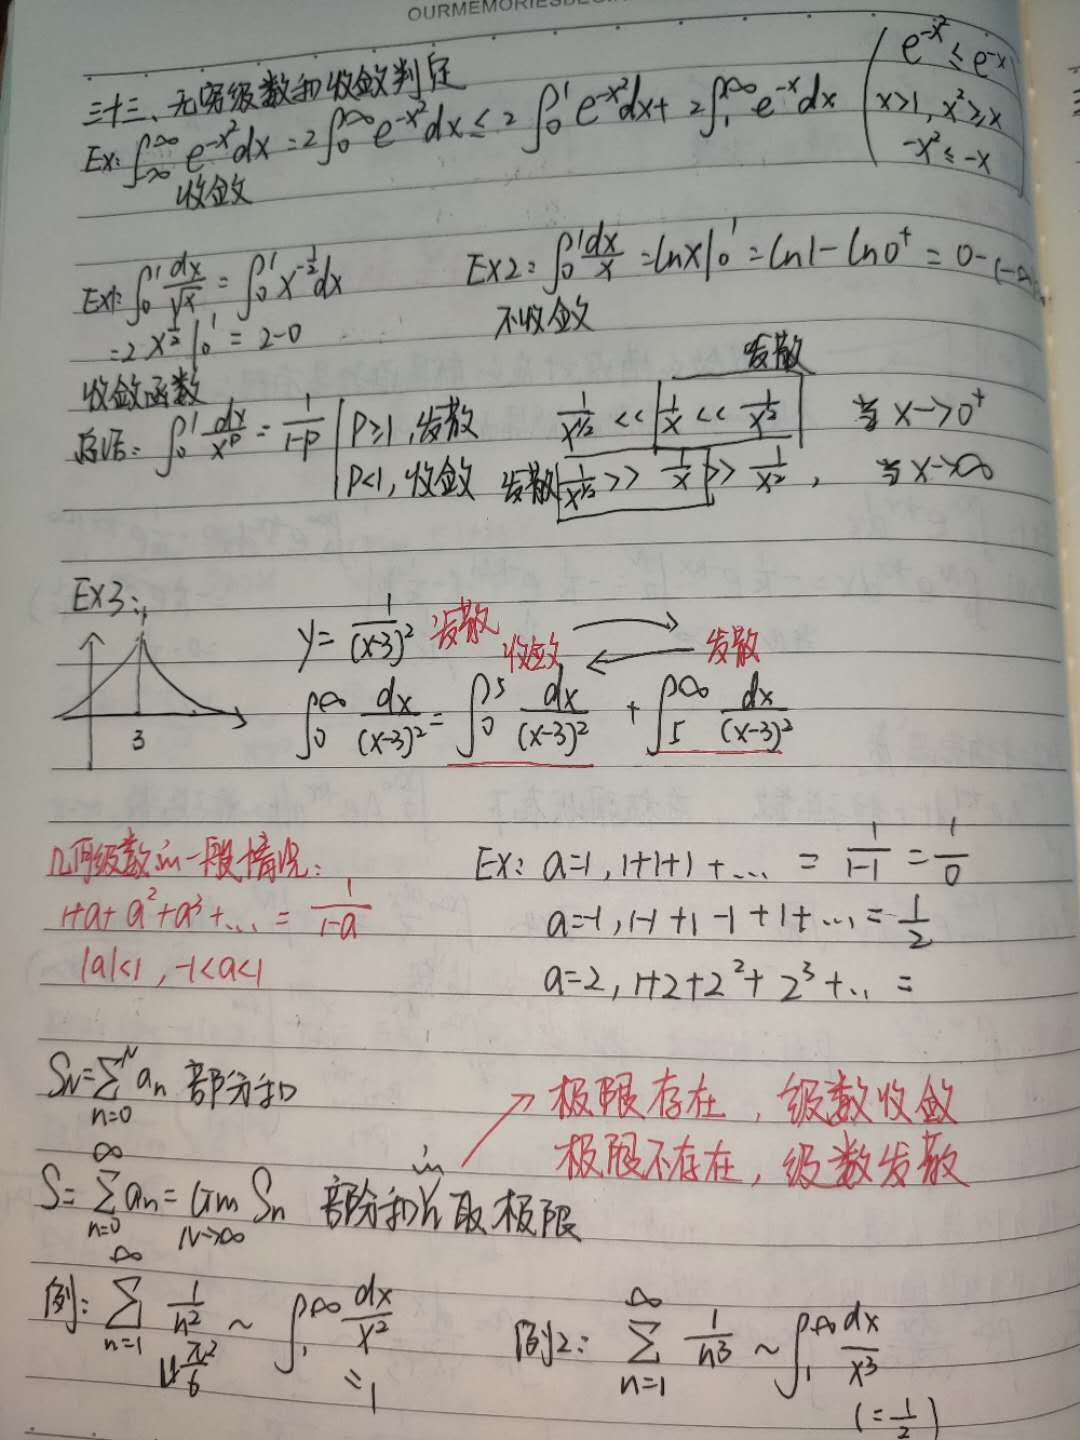 OURMEMORIESBEGIN
三十三、无穷级数和收敛判定
Ex: ∫_{-∞}^{∞} e^{-x²}dx = 2∫_0^∞ e^{-x²}dx ≤ 2∫_0^1 e^{-x²}dx + 2∫_1^∞ e^{-x}dx
收敛
e^{-x²} ≤ e^{-x}
x>1, x²≥x
-x² ≤ -x
Ex1: ∫_0^1 dx/√x = ∫_0^1 x^{-1/2}dx
= 2x^{1/2}|_0^1 = 2-0
收敛函数
Ex2: ∫_0^1 dx/x = lnx|_0^1 = ln1 - ln0⁺ = 0-(-∞)
不收敛
总结: ∫_0^1 dx/x^p = 1/(1-p) | P≥1, 发散
P<1, 收敛
发散
1/x^{1/2} << 1/x << 1/x² 当 x→0⁺
发散 1/x^{1/2} >> 1/x >> 1/x², 当 x→∞
Ex3:
3
y = 1/(x-3)² 发散
收敛 发散
∫_0^∞ dx/(x-3)² = ∫_0^5 dx/(x-3)² + ∫_5^∞ dx/(x-3)²
几何级数的一般情况:
1+a+a²+a³+... = 1/(1-a)
|a|<1, -1<a<1
Ex: a=1, 1+1+1+... = 1/(1-1) = 1/0
a=-1, 1-1+1-1+1+... = 1/2
a=2, 1+2+2²+2³+... =
S_N = Σ_{n=0}^N a_n 部分和
极限存在, 级数收敛
极限不存在, 级数发散
S = Σ_{n=0}^∞ a_n = lim_{N→∞} S_n 部分和的N取极限
例: Σ_{n=1}^∞ 1/n² ~ ∫_1^∞ dx/x²
π²/6
= 1
例2: Σ_{n=1}^∞ 1/n³ ~ ∫_1^∞ dx/x³
(= 1/2)